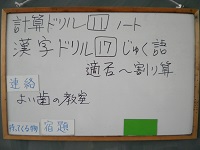 計算ドリル 11 ノート
漢字ドリル 17 じゅく語
適否〜割り算
連絡
よい歯の教室
宿題